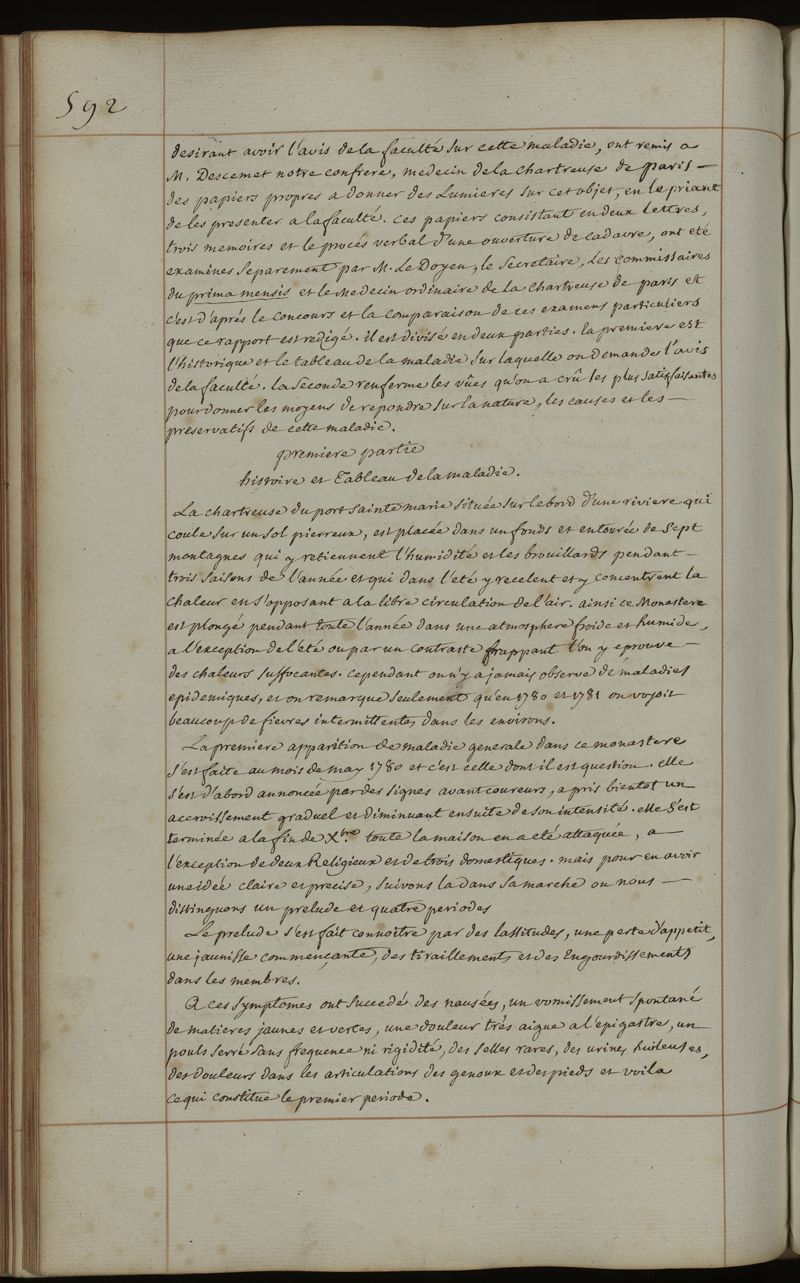 592
desirant avoir l'avis de la faculté sur cette maladie, ont remis a
M. Descemet notre confrere, medecin de la Chartreuse de paris —
des papiers propres a donner des Lumieres sur cet objet, en le priant
de les presenter a la faculté. ces papiers consistant en deux Lettres,
trois memoires et le procés verbal d'une ouverture de cadavre, ont eté
examinés separement par M. Le Doyen, le Secretaire, les commissaires
du prima mensis et le Medecin ordinaire de la Chartreuse de paris et
c'est d'aprés le concours et la comparaison de ces examens particuliers
que ce rapport est redigé. il est divisé en deux parties. la premiere est
l'historique et le tableau de la maladie sur laquelle on demande l'avis
de la faculté. la seconde renferme les vûes qu'on a crû les plus satisfaisantes
pour donner les moyens de repondre sur la nature, les causes et les —
préservatifs de cette maladie.
premiere partie
histoire et Tableau de la maladie.
La chartreuse du port sainte marie située sur le bord d'une riviere qui
coule sur un sol pierreux, est placée dans un fonds et entourée de sept
montagnes qui y retiennent l'humidité et les brouillards pendant —
trois saisons de l'année et qui dans l'eté y recelent et y concentrent la
chaleur en s'opposant a la libre circulation de l'air. ainsi ce Monastere
est plongé pendant toute l'année dans une atmosphere froide et humide,
a l'exception de l'été ou par un contraste frappant l'on y eprouve —
des chaleurs suffocantes. cependant on n'y a jamais observé de maladies
epidemiques, et on remarque seulement qu'en 1780 et 1781 on voyoit
beaucoup de fievres intermittentes dans les environs.
La premiere apparition de maladie generale dans ce monastere
s'est faite au mois de may 1780 et c'est celle dont il est question. elle
s'est d'abord annoncée par des signes avant coureurs, a pris bientot un
accroissement graduel et diminuant ensuite de son intensité. elle s'est
terminée a la fin de Xbre. toute la maison en a eté attaquée, a —
l'exception de deux Religieux et de trois domestiques. mais pour en avoir
une idée claire et precise, suivons la dans sa marche ou nous —
distinguons un prelude et quatre periodes
Le prelude s'est fait connoitre par des lassitudes, une perte d'appetit,
une jaunisse commençante, des tiraillements et des Engourdissements
dans les membres.
A ces symptomes ont succedé des nausées, un vomissement spontané
de matieres jaunes et vertes, une douleur trés aigue a l'epigastre, un
pouls serré sans frequence ni rigidité, des selles rares, des urines huileuses,
des douleurs dans les articulations des genoux et des pieds et voila
ce qui constitue le premier periode.